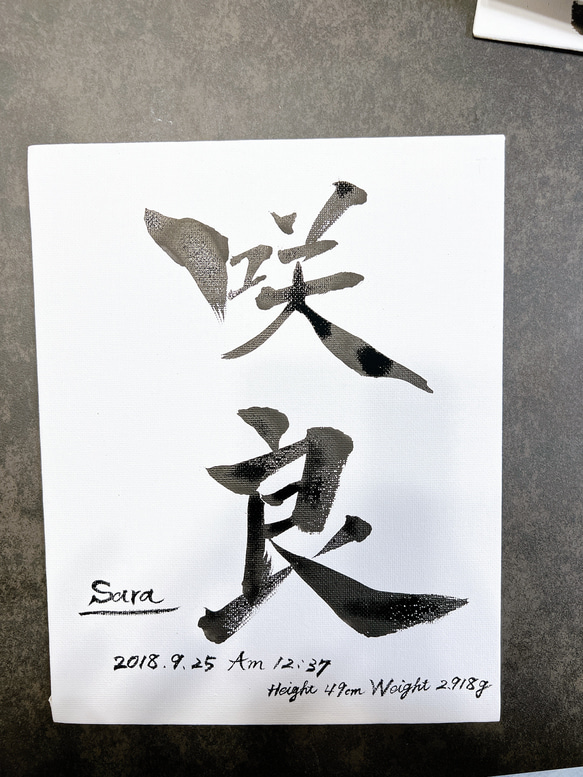 咲
良
Sara
2018.9.25 Am 12:37
Height 49cm Weight 2.918g